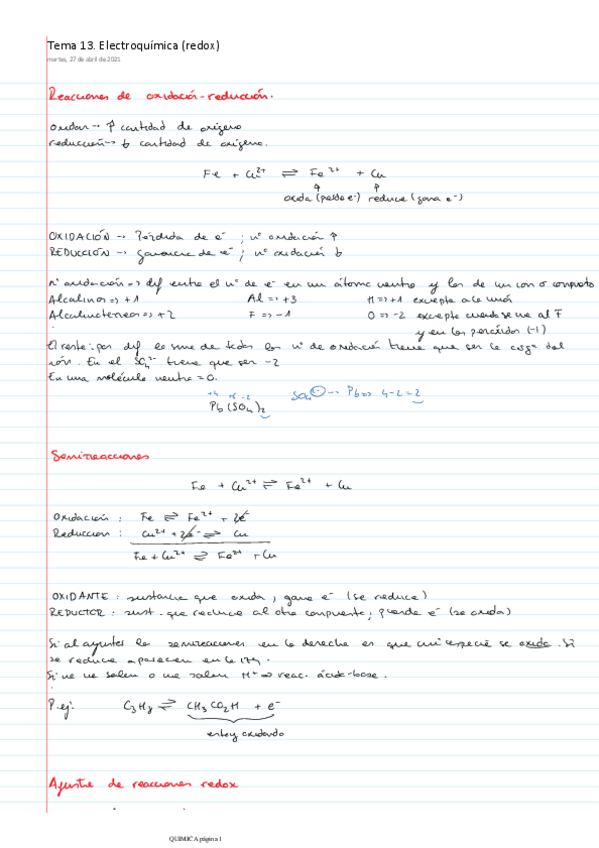 Tema 13. Electroquímica (redox)
martes, 27 de abril de 2021
Reacciones de oxidación-reducción.
oxidar → ↑ cantidad de oxígeno
reducción → ↓ cantidad de oxígeno.
Fe + Cu²⁺ ⇌ Fe²⁺ + Cu
oxida (pierde e⁻) reduce (gana e⁻)
OXIDACIÓN → Pérdida de e⁻ ; nº oxidación ↑
REDUCCIÓN → ganancia de e⁻ ; nº oxidación ↓
nº oxidación => dif entre el nº de e⁻ en un átomo neutro y los de un ion o compuesto.
Alcalinos => +1 Al => +3 H => +1 excepto a la unión
Alcalinotérreos => +2 F => -1 O => -2 excepto cuando se une al F
y en los peróxidos (-1)
El resto: por dif la suma de todos los nº de oxidación tiene que ser la carga del
ión. En el SO₄²⁻ tiene que ser -2
En una molécula neutra = 0.
+4 +6 -2
Pb(SO₄)₂
4-2=2
Semirreacciones
Fe + Cu²⁺ ⇌ Fe²⁺ + Cu
Oxidación : Fe ⇌ Fe²⁺ + 2e⁻
Reduccion : Cu²⁺ + 2e⁻ ⇌ Cu
Fe + Cu²⁺ ⇌ Fe²⁺ + Cu
OXIDANTE : sustancia que oxida, gana e⁻ (se reduce)
REDUCTOR : sust. que reduce al otro compuesto; pierde e⁻ (se oxida)
Si al ajustar las semireacciones en la derecha es que mi especie se oxida. Si
se reduce aparecen en la izq.
Si no salen H⁺ => reac. ácido-base.
P.ej: C₃H₈ ⇌ CH₃CO₂H + e⁻
estoy oxidando
Ajuste de reacciones redox
QUIMICA página 1